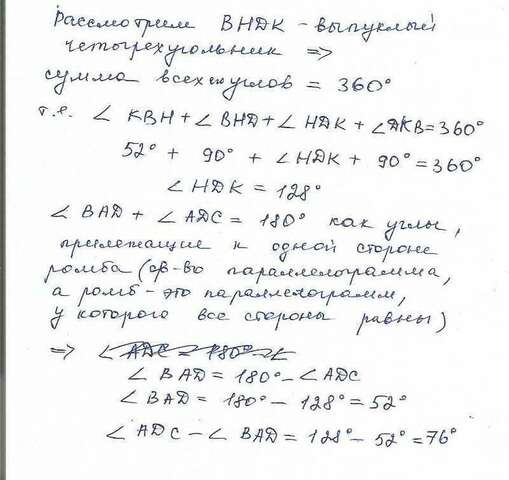 Рассмотрим ВНДК - выпуклый
четырехугольник =>
сумма всех его углов = 360°
т.е. ∠ КВН + ∠ ВНД + ∠ НДК + ∠ДКВ = 360°
52° + 90° + ∠ НДК + 90° = 360°
∠ НДК = 128°
∠ ВАД + ∠ АДС = 180° как углы,
прилежащие к одной стороне
ромба (св-во параллелограмма,
а ромб - это параллелограмм,
у которого все стороны равны)
=> ∠ АДС = 180° - ∠
∠ ВАД = 180° - ∠ АДС
∠ ВАД = 180° - 128° = 52°
∠ АДС - ∠ ВАД = 128° - 52° = 76°